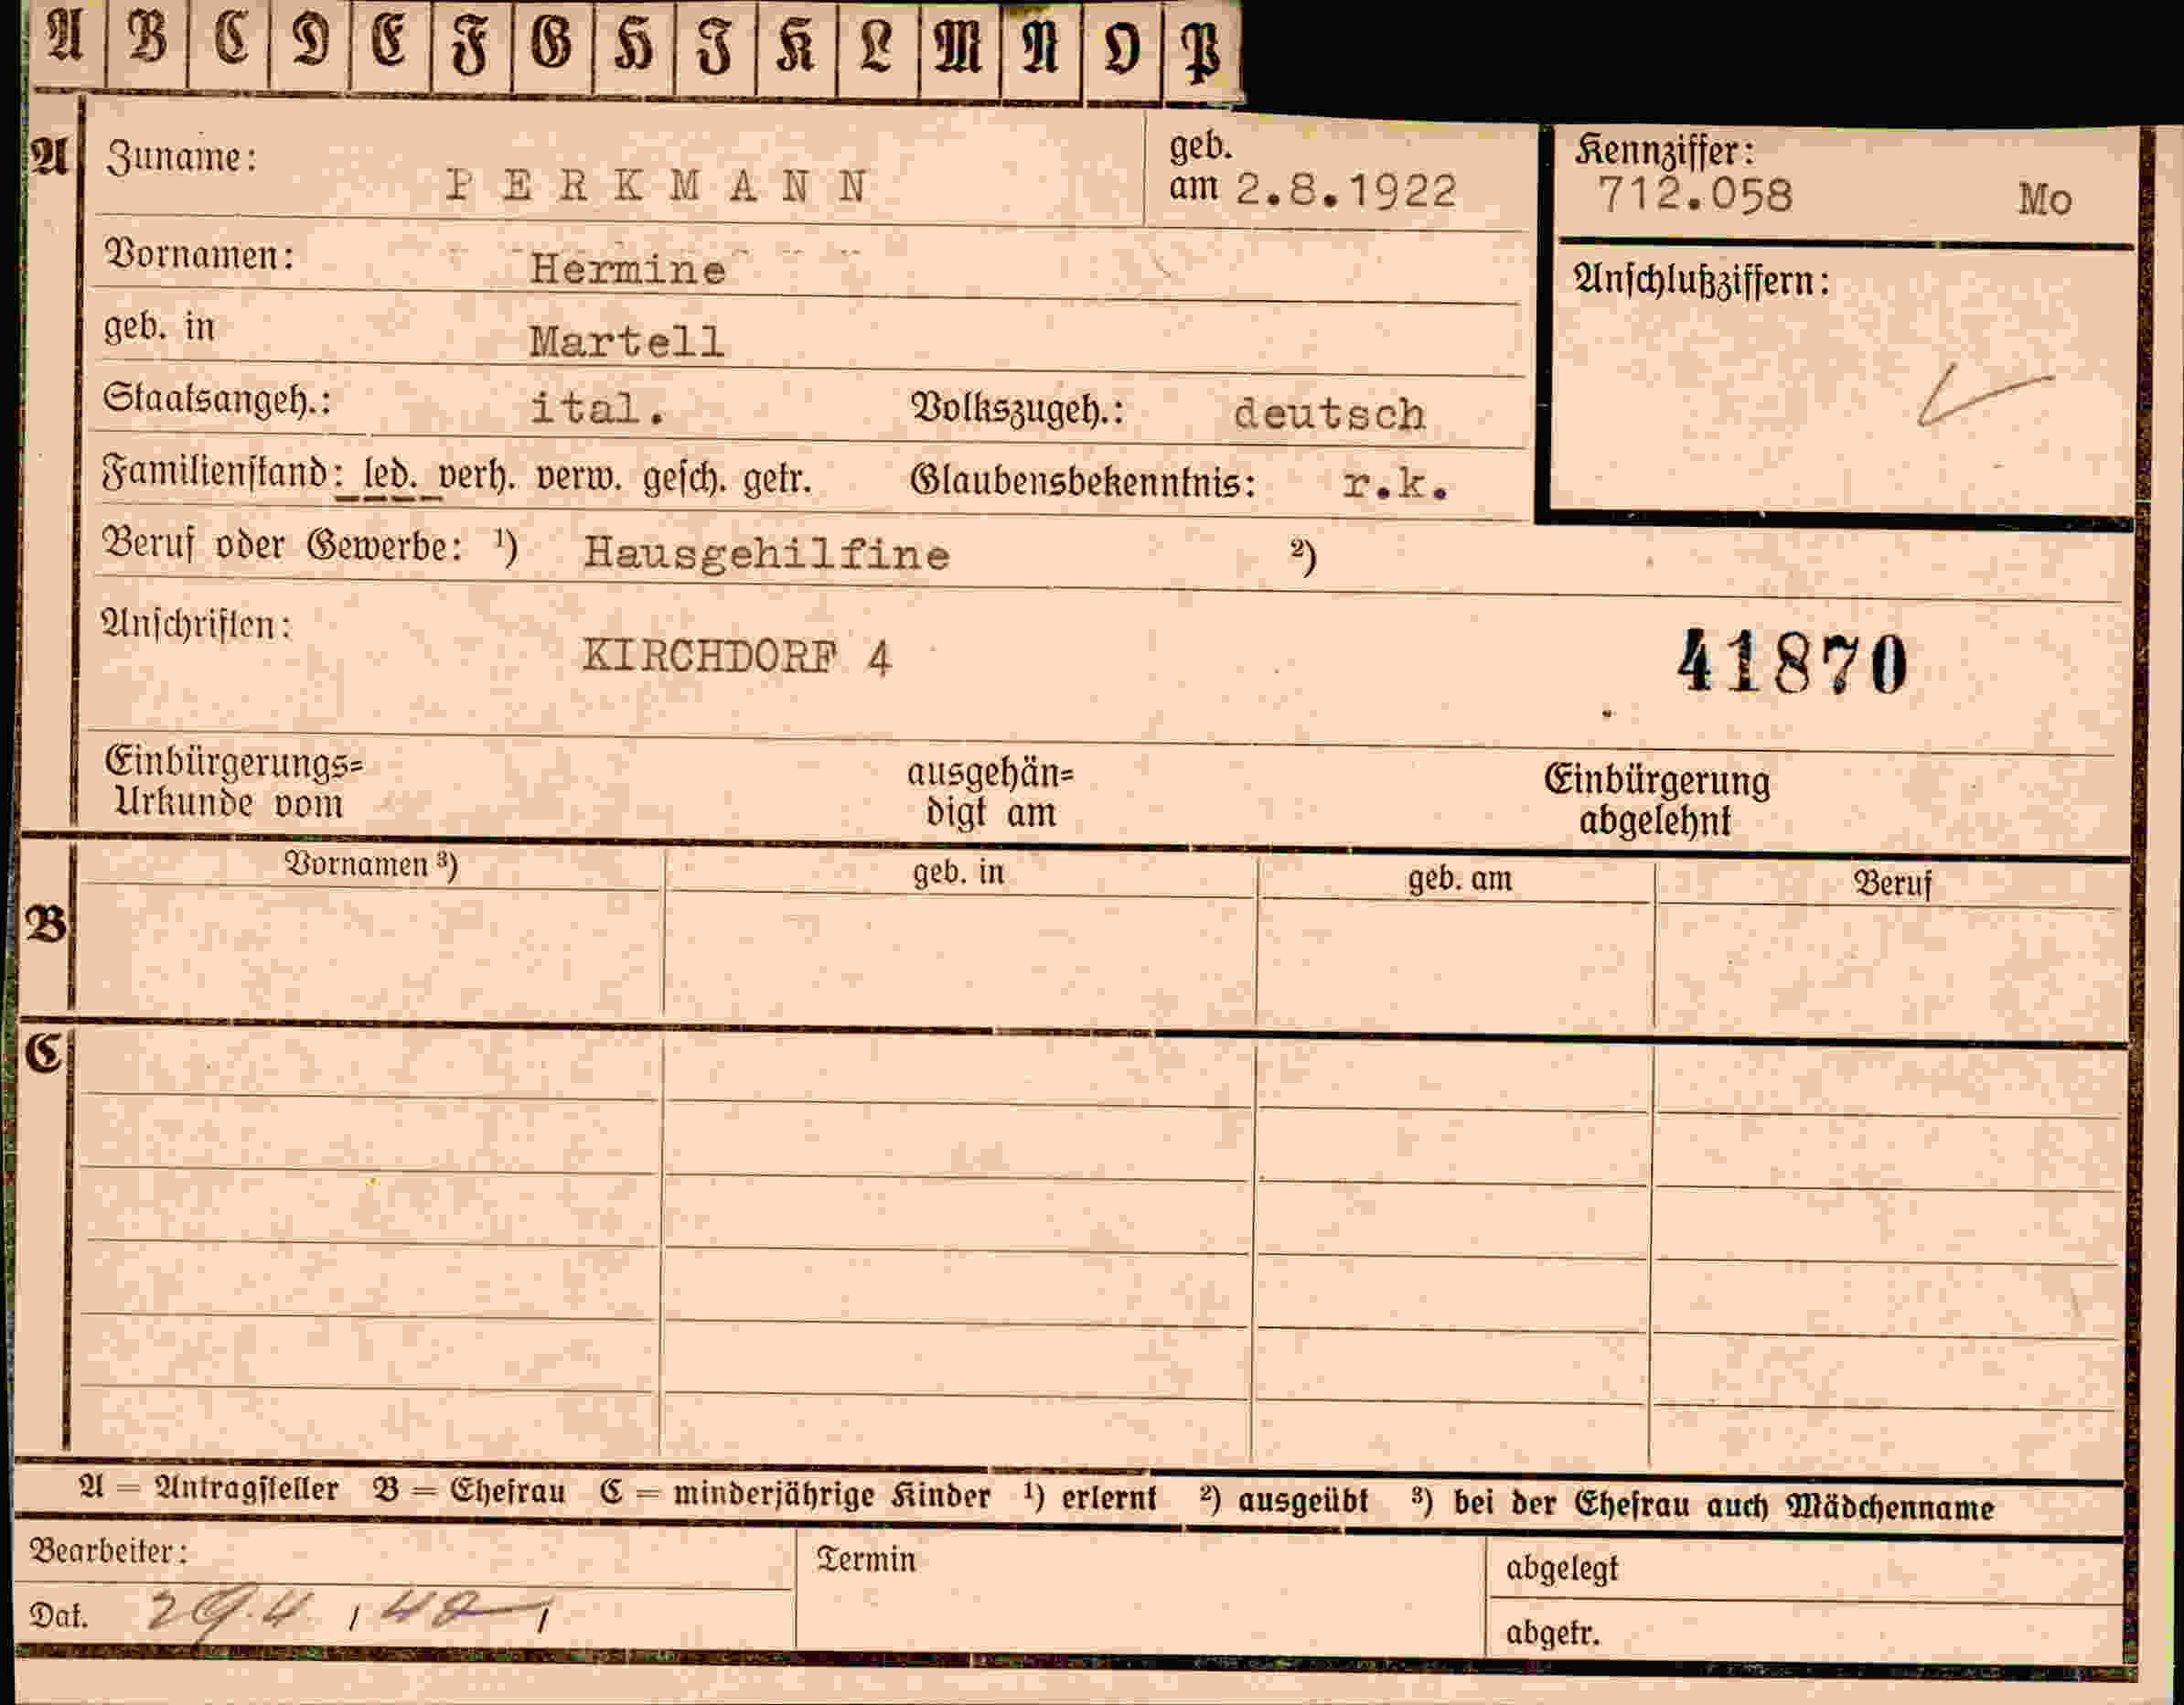 A B C D E F G H J K L M N O P
A Zuname: PERKMANN geb. am 2.8.1922 Kennziffer: 712.058 Mo
Vornamen: Hermine Anschlußziffern:
geb. in Martell
Staatsangeh.: ital. Volkszugeh.: deutsch
Familienstand: led. verh. verw. gesch. getr. Glaubensbekenntnis: r.k.
Beruf oder Gewerbe: ¹) Hausgehilfine ²)
Anschriften: KIRCHDORF 4 41870
Einbürgerungs= ausgehän= Einbürgerung
Urkunde vom digt am abgelehnt
Vornamen ³) geb. in geb. am Beruf
B
C
A = Antragsteller B = Ehefrau C = minderjährige Kinder ¹) erlernt ²) ausgeübt ³) bei der Ehefrau auch Mädchenname
Bearbeiter: Termin abgelegt
Dat. 29.4. abgetr.